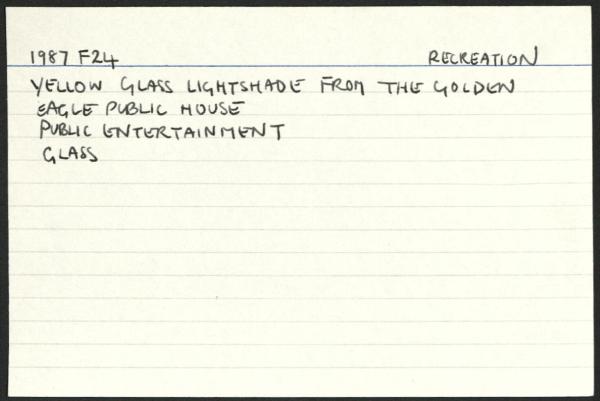 1987 F24 RECREATION
YELLOW GLASS LIGHTSHADE FROM THE GOLDEN
EAGLE PUBLIC HOUSE
PUBLIC ENTERTAINMENT
GLASS